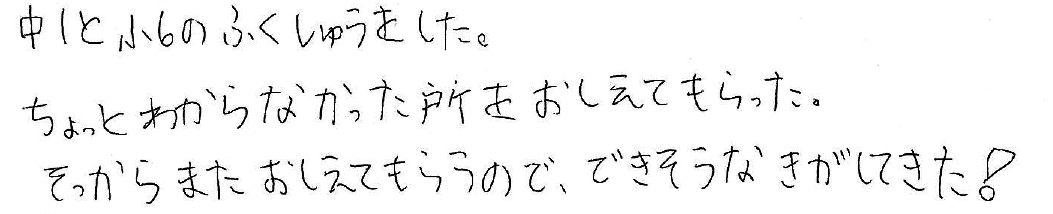 中1と小6のふくしゅうをした。
ちょっとわからなかった所をおしえてもらった。
そっからまたおしえてもらうので、できそうなきがしてきた!